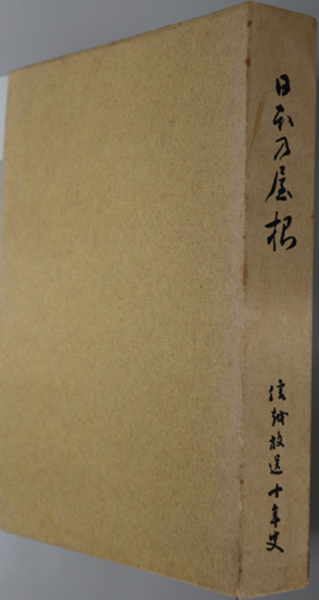 日本の屋根
信越放送十年史